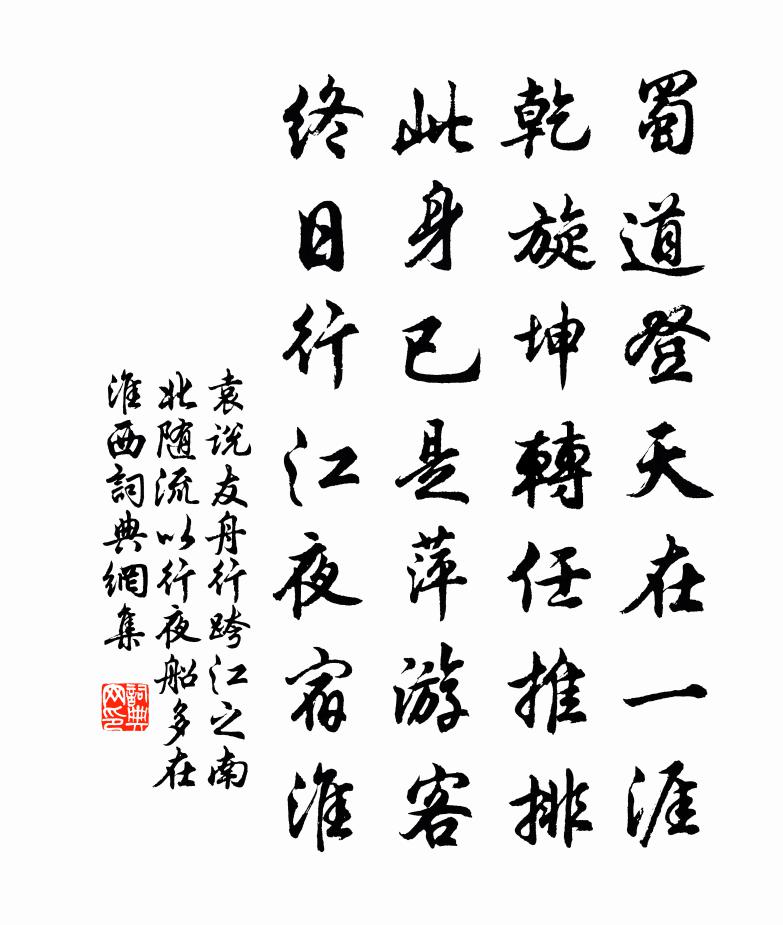 蜀道登天在一涯
乾旋坤轉任推排
此身已是萍游客
终日行江夜宿淮
袁说友舟行跨江之南
北随流以行夜船多在
淮西詞典網集
詞典
网印